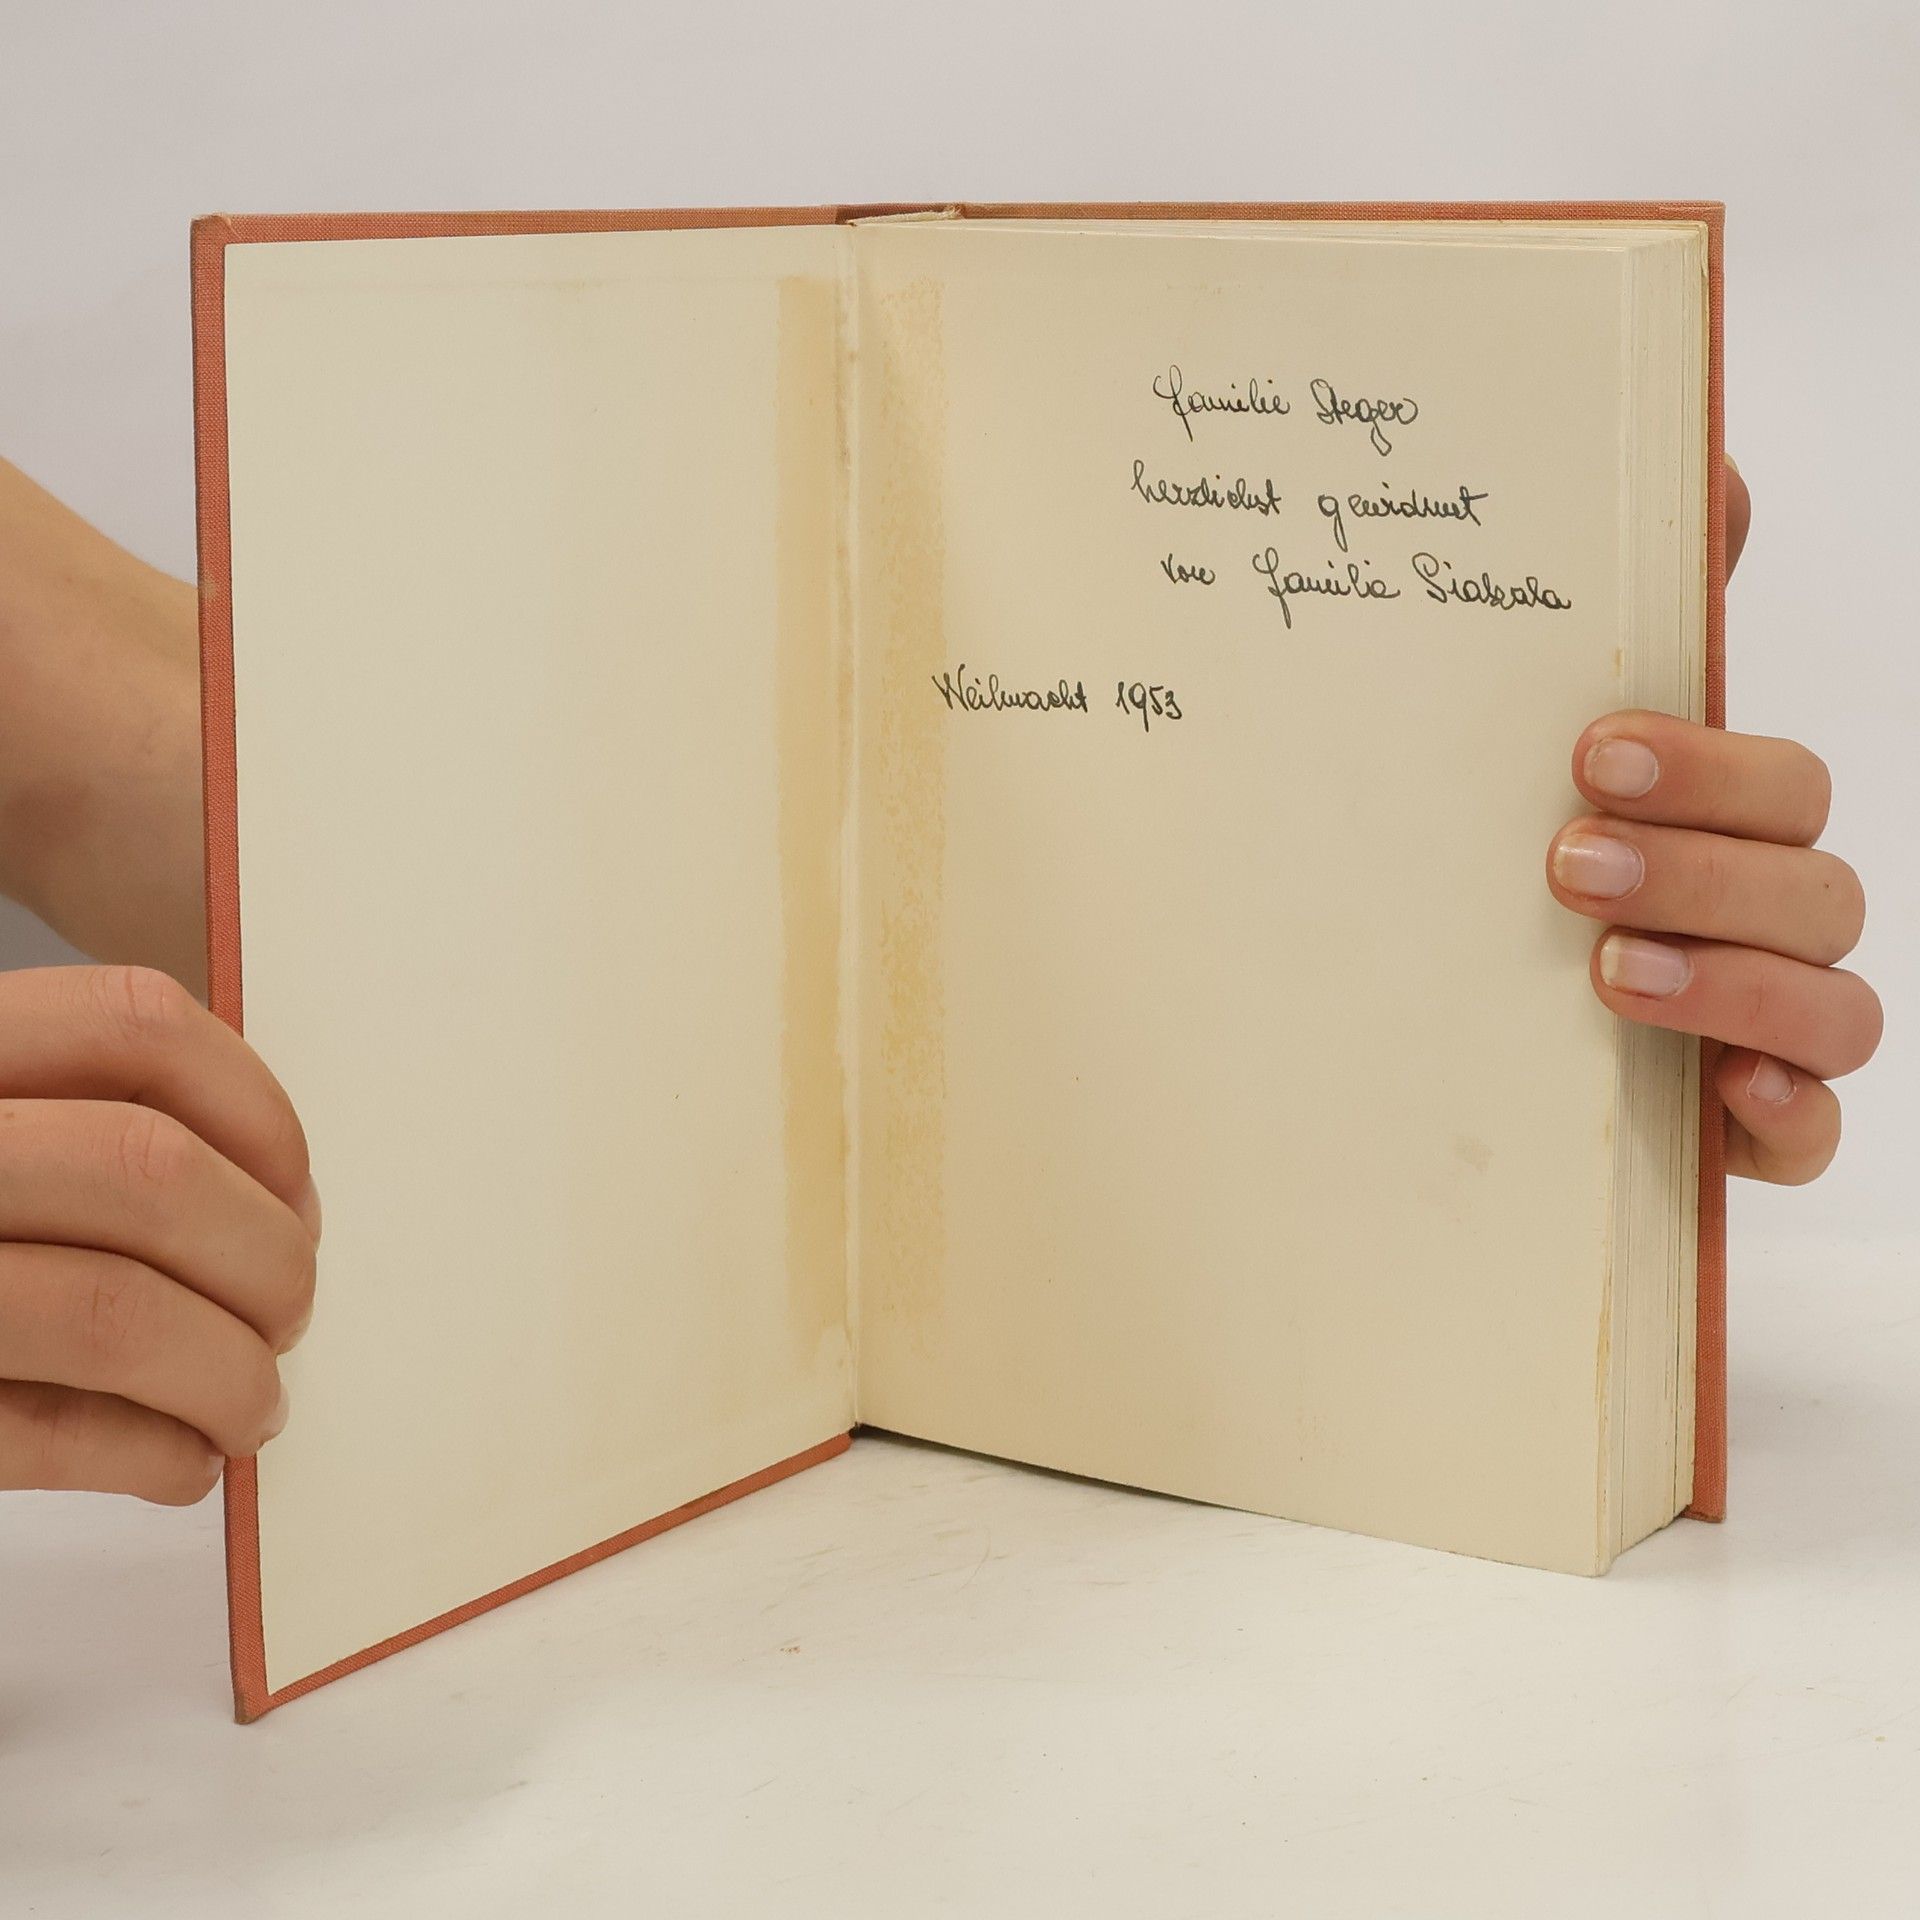 Familie Steger
herzlichst gewidmet
von Familie
Weihnacht 1953